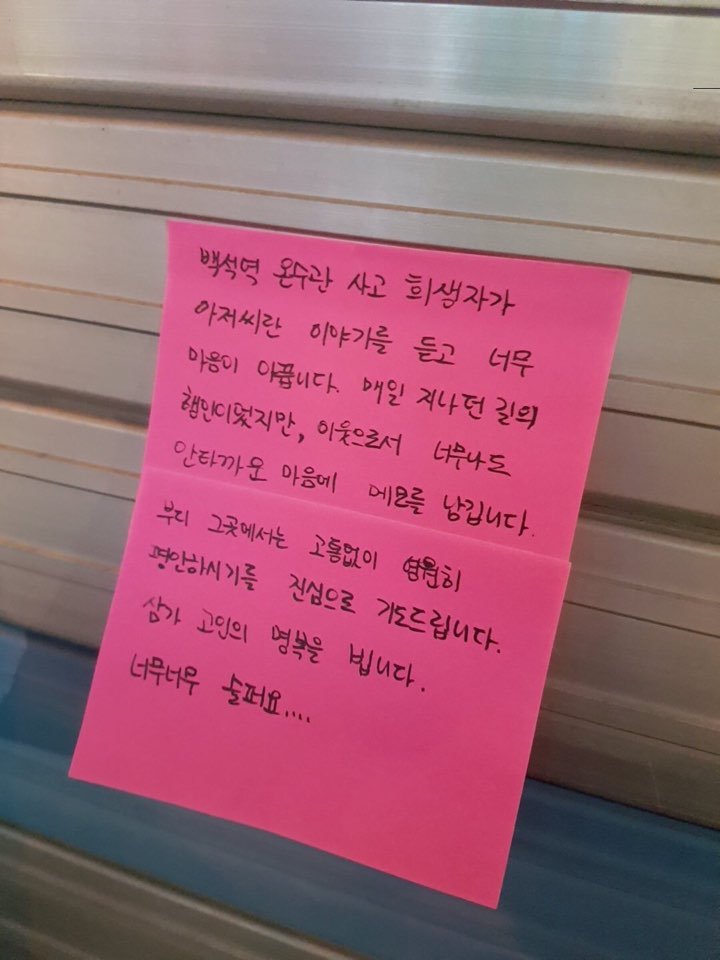 백석역 온수관 사고 희생자가
아저씨란 이야기를 듣고 너무
마음이 아픕니다. 매일 지나던 길의
행인이었지만, 이웃으로서 너무나도
안타까운 마음에 메모를 남깁니다.
부디 그곳에서는 고통없이 영원히
평안하시기를 진심으로 기도드립니다.
삼가 고인의 명복을 빕니다.
너무너무 슬퍼요....